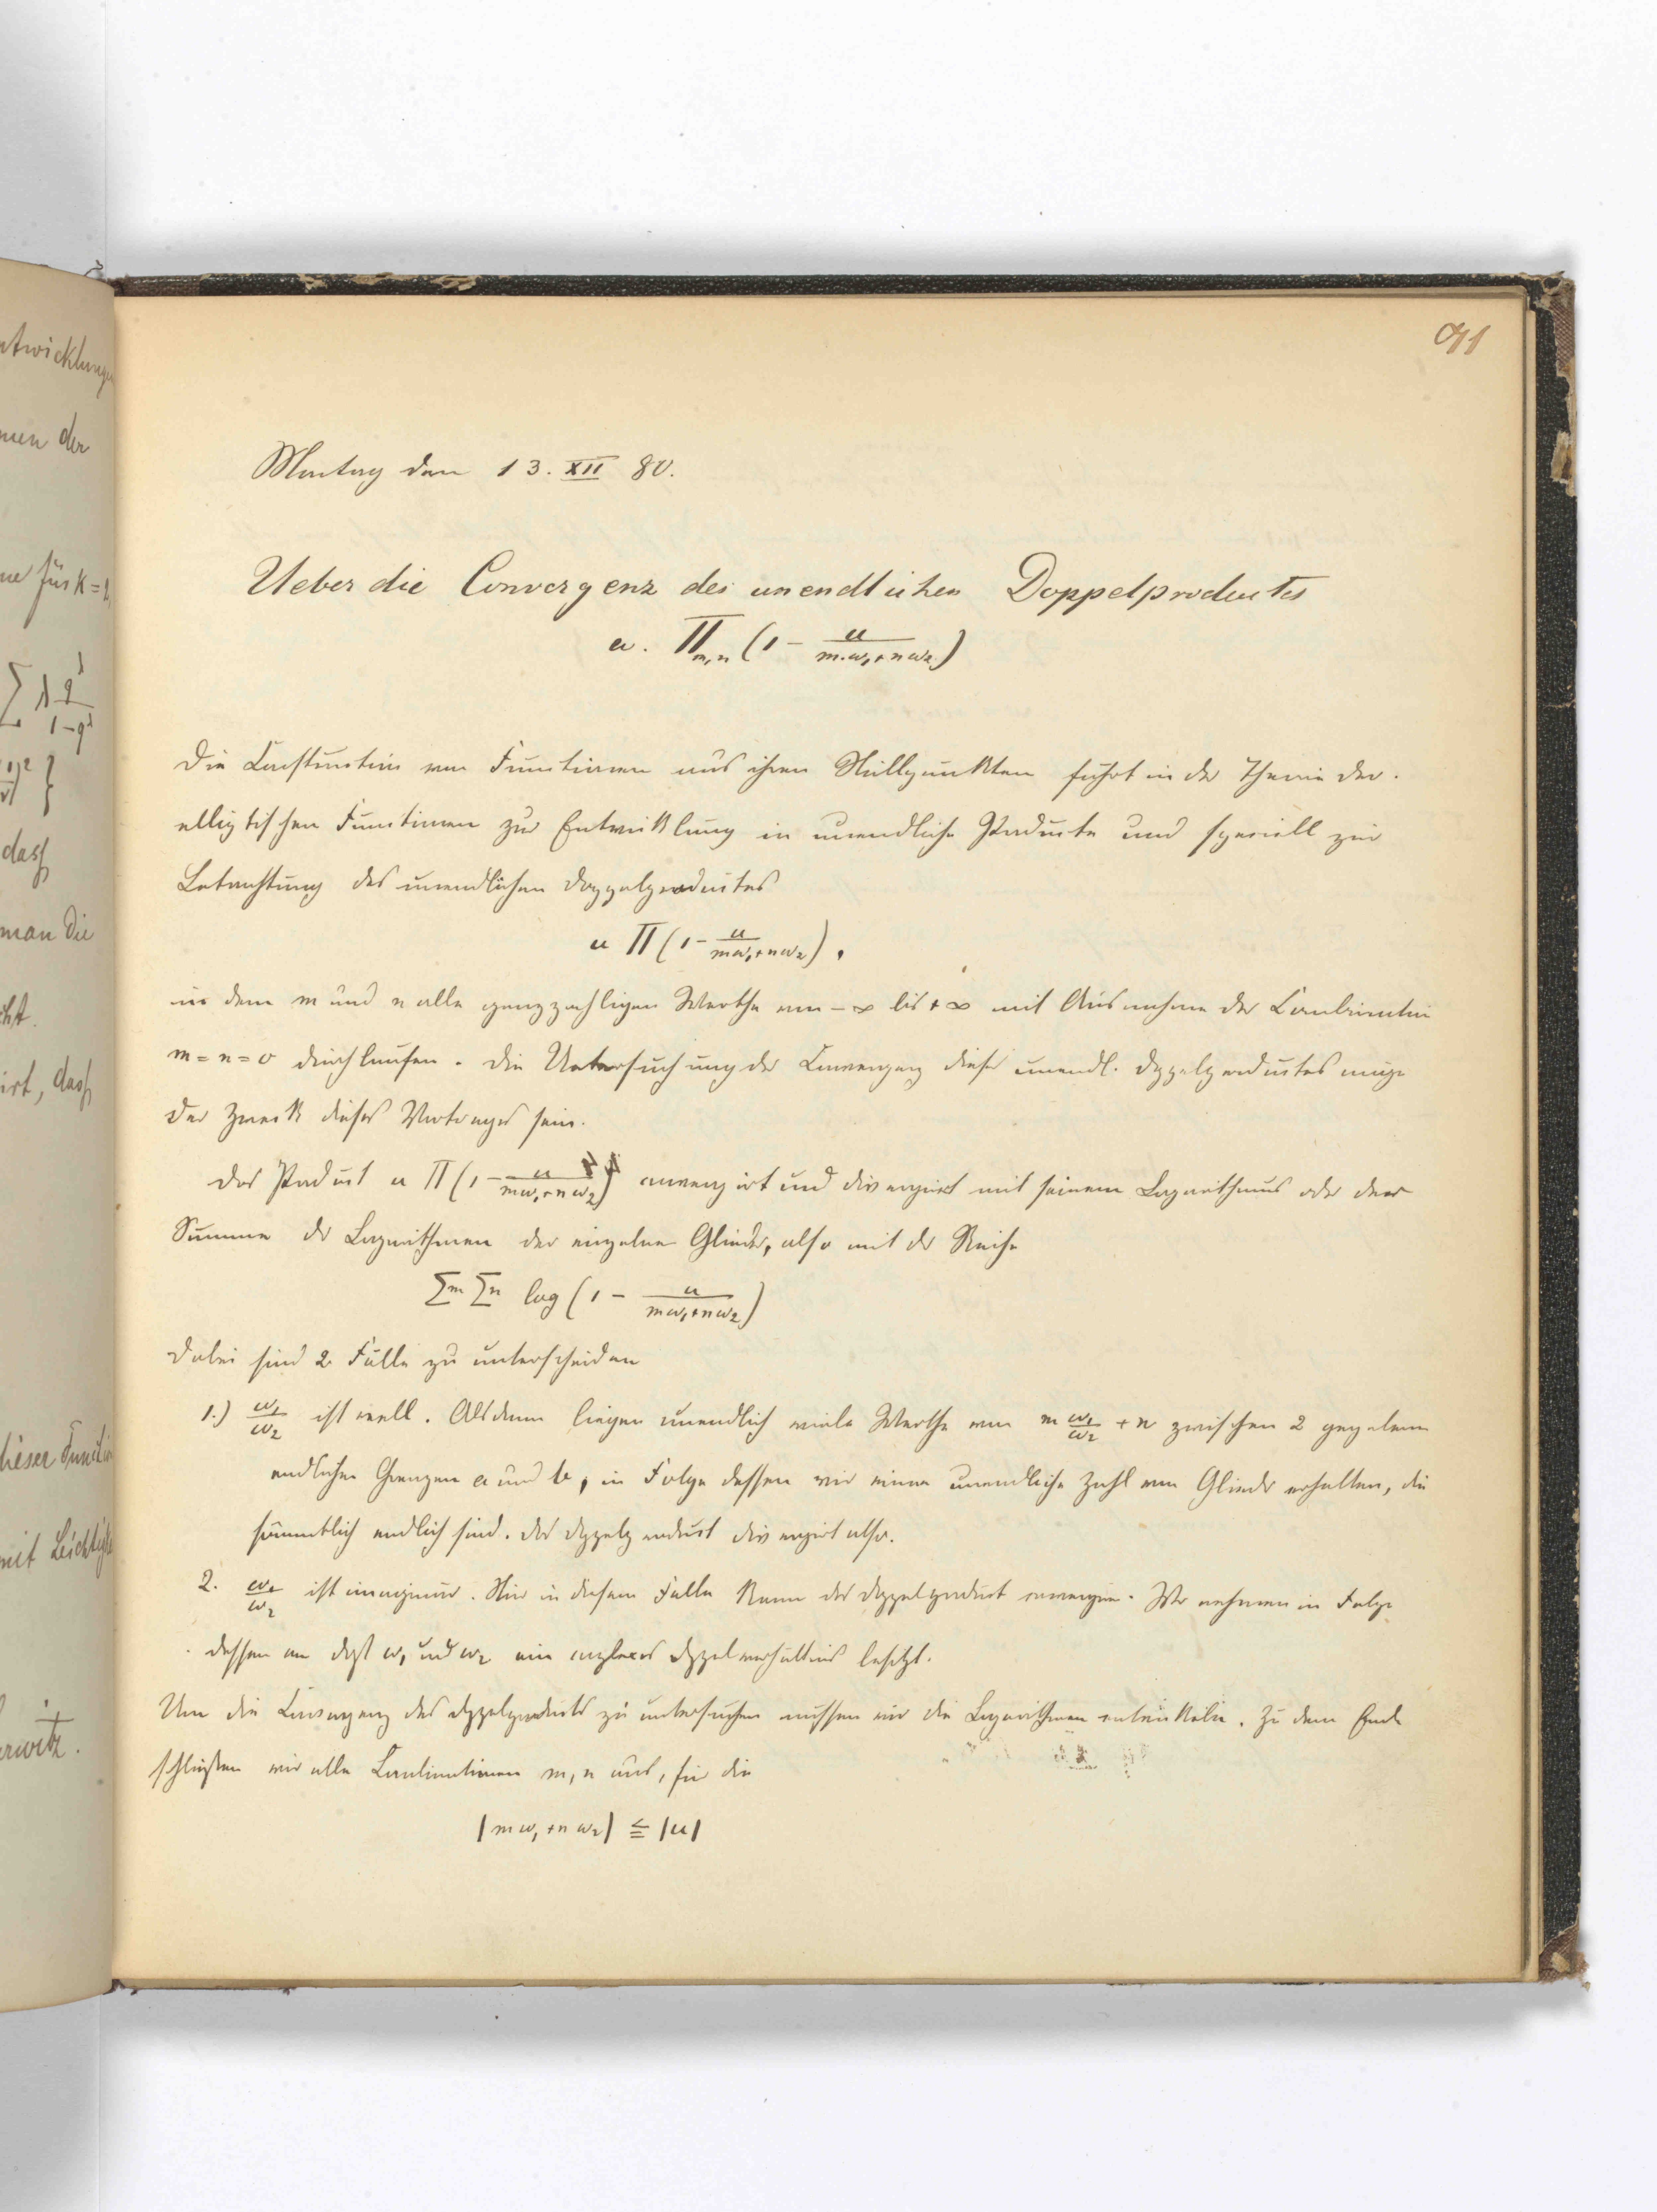 91
Montag den 13. XII 80.
Ueber die Convergenz des unendlichen Doppelproductes
u. Π_{m,n} (1 - u/(m.ω₁+nω₂))
Die Construction von Functionen aus ihren Nullpunkten führt in der Theorie der
elliptischen Functionen zur Entwicklung in unendliche Producte und speciell zur
Betrachtung des unendlichen Doppelproductes
u Π (1 - u/(mω₁+nω₂)),
in dem m und n alle ganzzahligen Werthe von -∞ bis +∞ mit Ausnahme der Combination
m = n = 0 durchlaufen. Die Untersuchung der Convergenz dieses unendl. Doppelproductes möge
der Zweck dieses Vortrages sein.
Das Product u Π (1 - u/(mω₁+nω₂)) convergirt und divergirt mit seinem Logarithmus oder der
Summe der Logarithmen der einzelnen Glieder, also mit der Reihe
Σm Σn log (1 - u/(mω₁+nω₂))
Dabei sind 2 Fälle zu unterscheiden
1.) ω₁/ω₂ ist reell. Alsdann liegen unendlich viele Werthe von m ω₁/ω₂ + n zwischen 2 gegebenen
endlichen Grenzen a und b, in Folge dessen wir eine unendliche Zahl von Glieder erhalten, die
sämmtlich endlich sind. Das Doppelproduct divergirt also.
2. ω₁/ω₂ ist imaginär. Nur in diesem Falle kann das Doppelproduct convergiren. Wir nehmen in Folge
dessen an daß ω₁ und ω₂ ein complexes besitzt.
Um die Convergenz des Doppelproducts zu untersuchen müssen wir die Logarithmen entwickeln. Zu dem Ende
schließen wir alle Combinationen m, n aus, für die
|mω₁+nω₂| ≦ |u|
ntwicklungen
men der
ne für k = 2
Σ λ q^λ/(1-q^λ)
dass
man die
cht.
irt, dass
dieser Function
mit Leichtigk
rwitz.